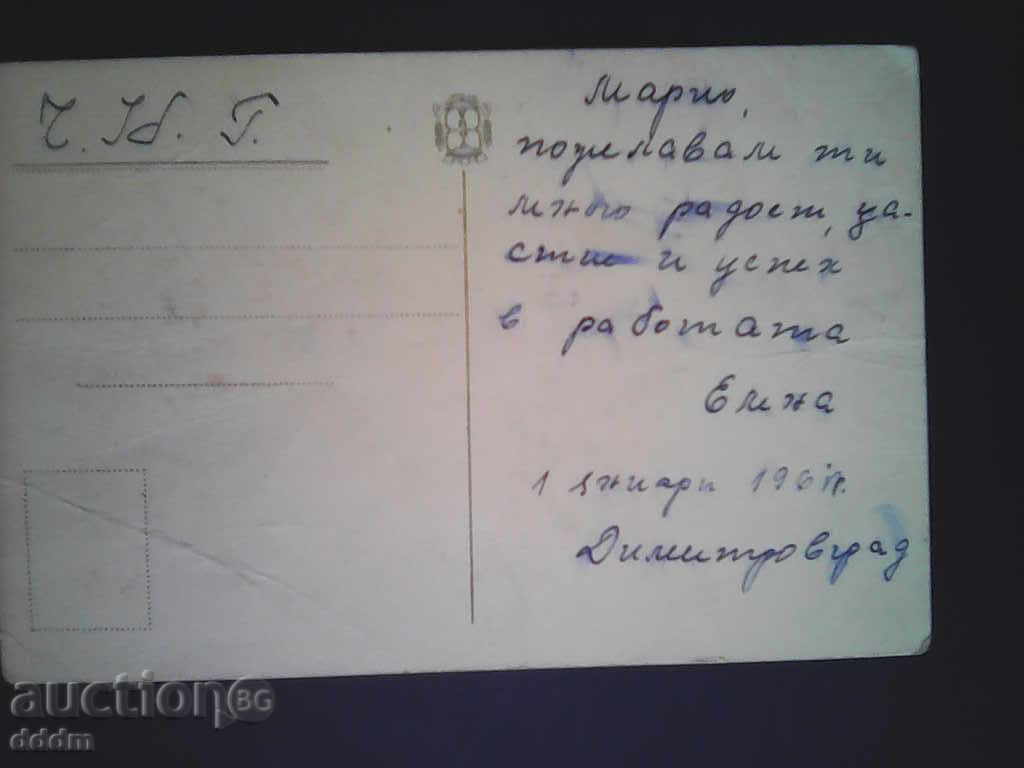 Ч. Н. Г.
Марио,
пожелавам ти
много радост, ща-
стие и успех
в работата
Елена
1 януари 196 г.
Димитровград
auctionBG
dddm